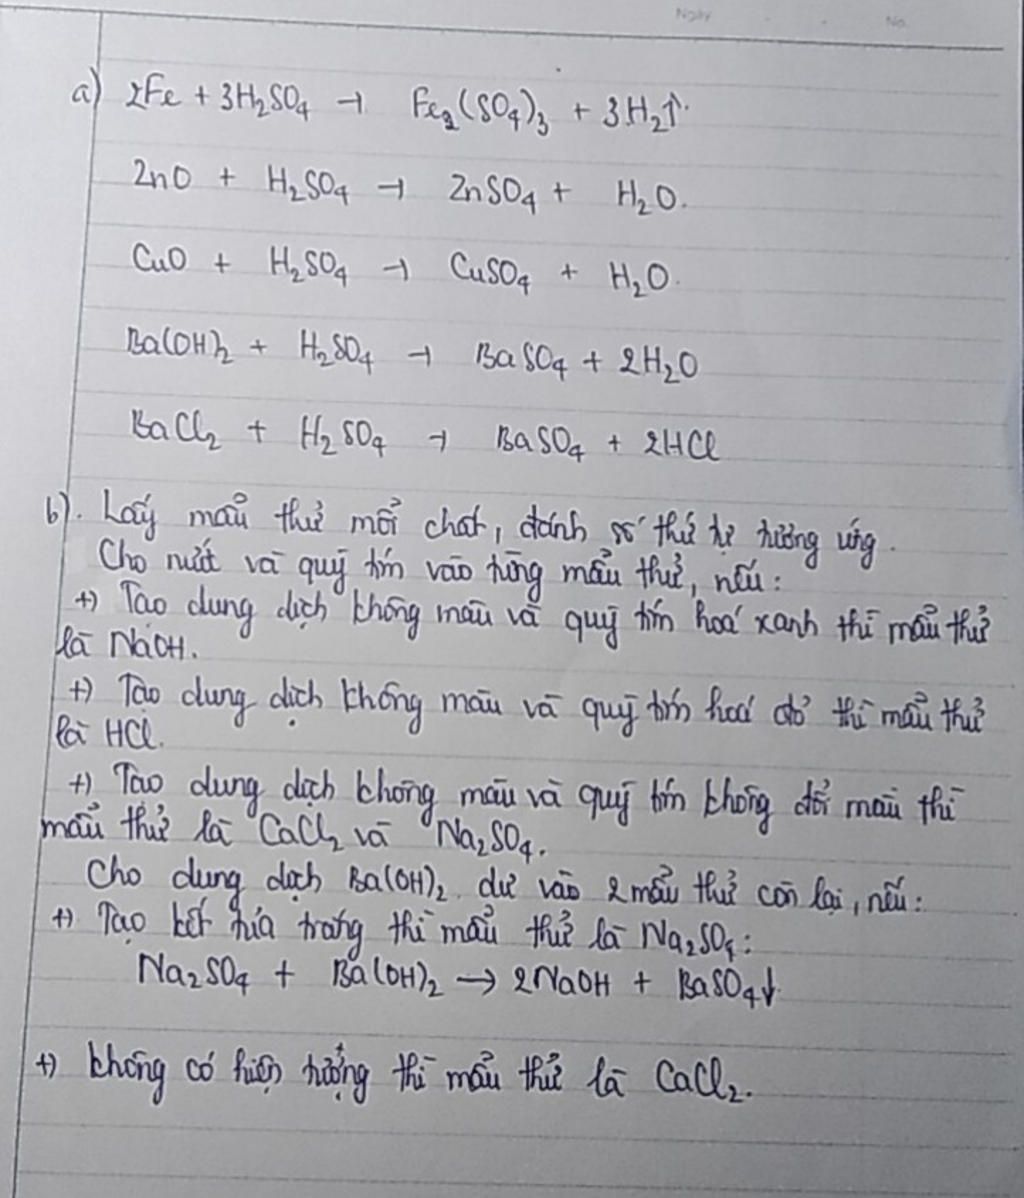 Ngày No.
a) 2Fe + 3H₂SO₄ → Fe₂(SO₄)₃ + 3H₂↑.
ZnO + H₂SO₄ → ZnSO₄ + H₂O.
CuO + H₂SO₄ → CuSO₄ + H₂O.
Ba(OH)₂ + H₂SO₄ → BaSO₄ + 2H₂O
BaCl₂ + H₂SO₄ → BaSO₄ + 2HCl
b). Lấy mẫu thử mỗi chất, đánh số thứ tự tương ứng.
Cho nước và quỳ tím vào từng mẫu thử, nếu:
+) Tạo dung dịch không màu và quỳ tím hoá xanh thì mẫu thử
là NaOH.
+) Tạo dung dịch không màu và quỳ tím hoá đỏ thì mẫu thử
là HCl.
+) Tạo dung dịch không màu và quỳ tím không đổi màu thì
mẫu thử là CaCl₂ và Na₂SO₄.
Cho dung dịch Ba(OH)₂ dư vào 2 mẫu thử còn lại, nếu:
+) Tạo kết tủa trắng thì mẫu thử là Na₂SO₄:
Na₂SO₄ + Ba(OH)₂ → 2NaOH + BaSO₄↓
+) không có hiện tượng thì mẫu thử là CaCl₂.